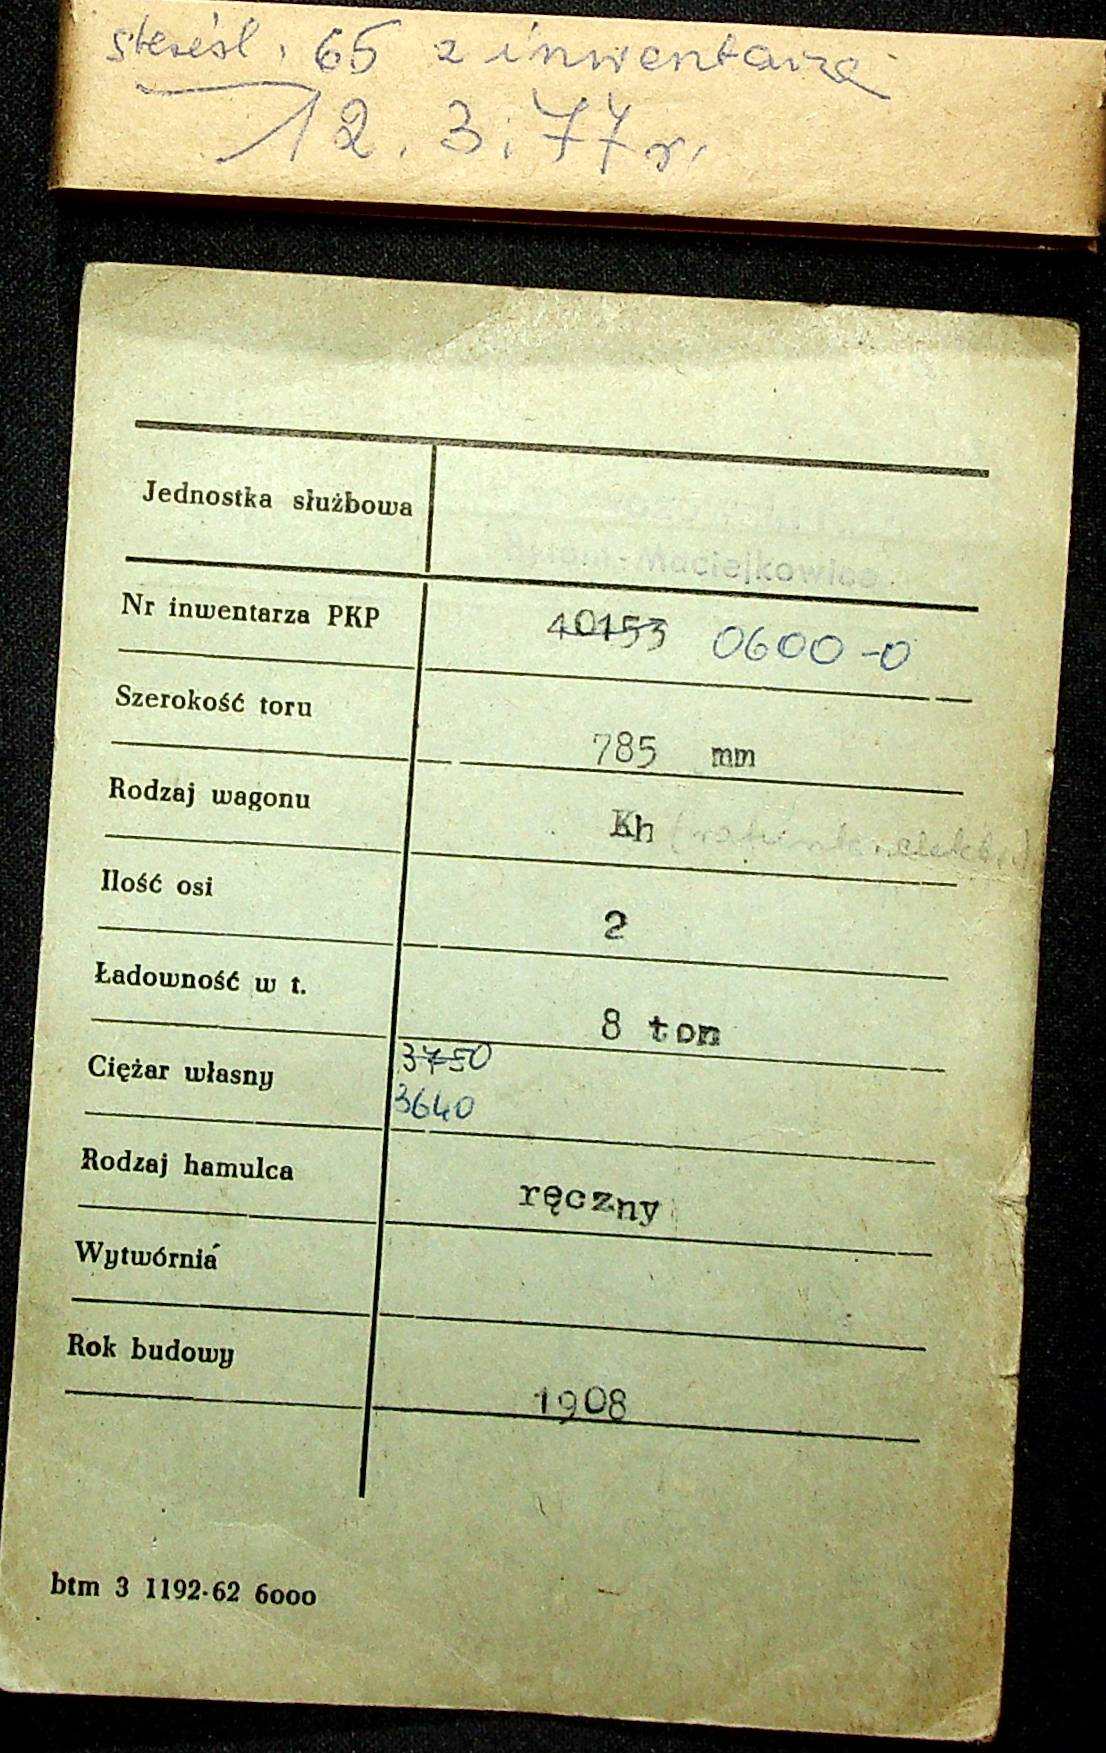 65 z inwentarza
12.3.77 r.
Jednostka służbowa
Maciejkowice
Nr inwentarza PKP 40153 0600-0
Szerokość toru 785 mm
Rodzaj wagonu Kh
Ilość osi 2
Ładowność w t. 8 ton
Ciężar własny 3750
3640
Rodzaj hamulca ręczny
Wytwórnia
Rok budowy 1908
btm 3 1192-62 6000